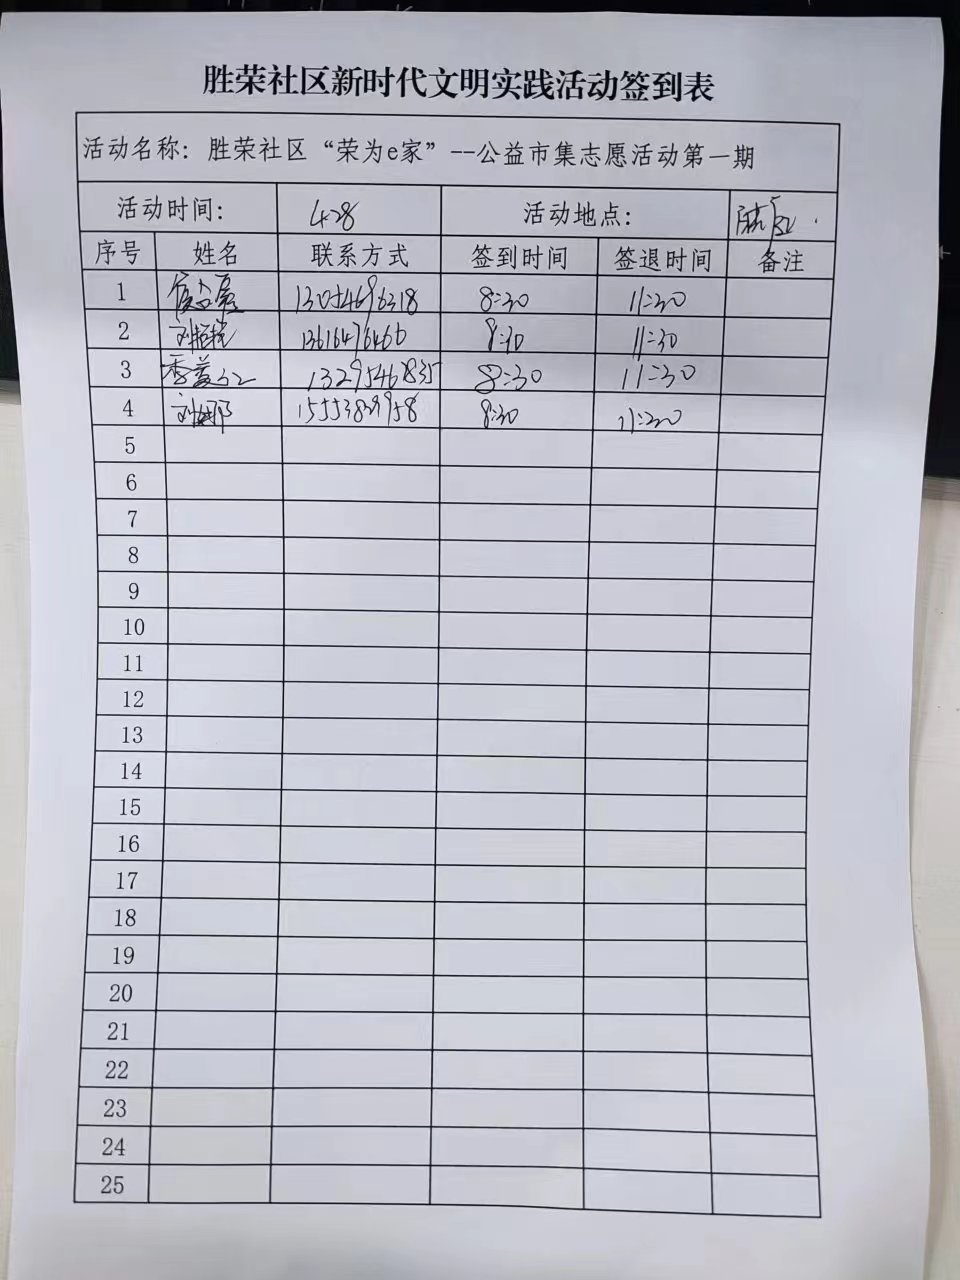 胜荣社区新时代文明实践活动签到表
活动名称：胜荣社区“荣为e家”--公益市集志愿活动第一期
活动时间： 4.28 活动地点：
序号 姓名 联系方式 签到时间 签退时间 备注
1 13054696318 8:30 11:30
2 刘 13616476460 8:30 11:30
3 季 13295461835 8:30 11:30
4 刘娜 8:30 11:30
5
6
7
8
9
10
11
12
13
14
15
16
17
18
19
20
21
22
23
24
25